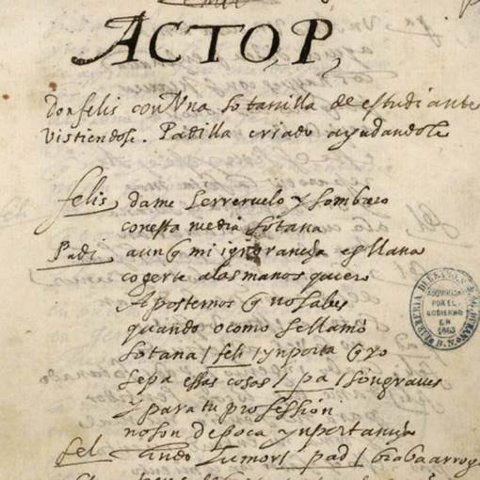 ACTO, P,
Don felis con Vna sotanilla de estudiante
vistiendose. Padilla criado ayudandole
felis dame ferreruelo y sombrero
con esta media sotana
Padi aunq mi ignorancia es llana
cogerte alas manos quiero
Apostemos q no sabes
quando o como se llamó
sotana / feli / ynporta q yo
sepa essas cosas / pa / son graues
y para tu profession
no son de poca ynportancia
fel humor / pad /